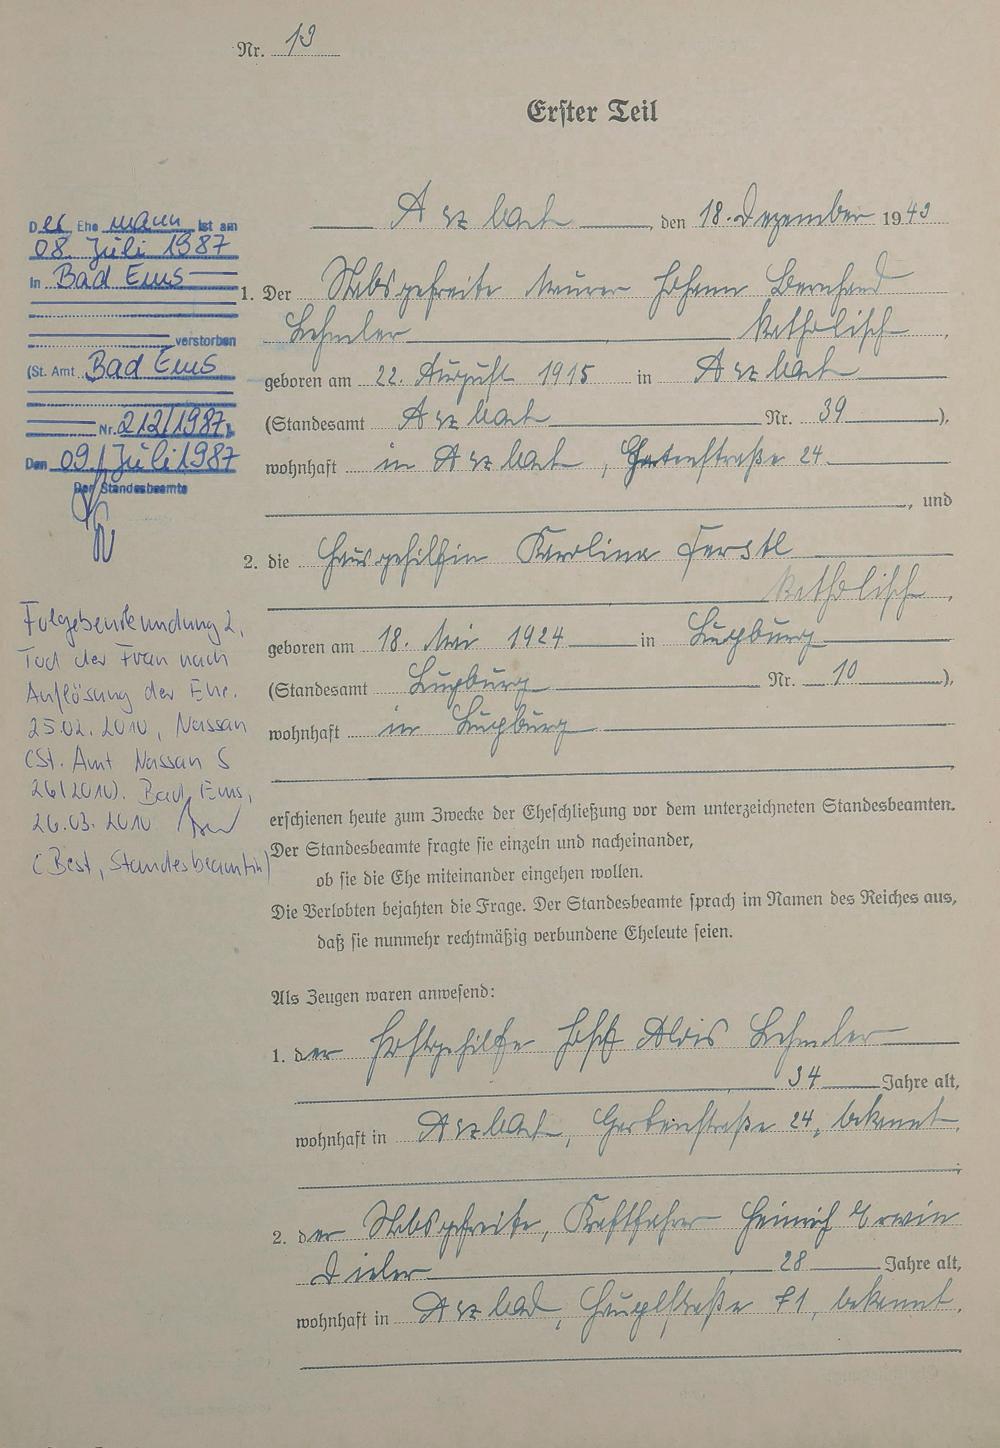 Nr. 13
Erster Teil
Arzbach, den 18. Dezember 1943
1. Der Stabsgefreite Maurer Johann Bernhard
Lehmler katholisch,
geboren am 22. August 1915 in Arzbach
(Standesamt Arzbach Nr. 39),
wohnhaft in Arzbach, Gartenstraße 24
, und
2. die Hausgehilfin Karolina Ferstl
katholisch,
geboren am 18. Mai 1924 in
(Standesamt Nr. 10),
wohnhaft in
erschienen heute zum Zwecke der Eheschließung vor dem unterzeichneten Standesbeamten.
Der Standesbeamte fragte sie einzeln und nacheinander,
ob sie die Ehe miteinander eingehen wollen.
Die Verlobten bejahten die Frage. Der Standesbeamte sprach im Namen des Reiches aus,
daß sie nunmehr rechtmäßig verbundene Eheleute seien.
Als Zeugen waren anwesend:
1. der Josef Alois Lehmler
34 Jahre alt,
wohnhaft in Arzbach, Gartenstraße 24, bekannt,
;
2. der Stabsgefreite, Kraftfahrer Heinrich Erwin
28 Jahre alt,
wohnhaft in Arzbach, Hauptstraße 71, bekannt.
Der Ehemann ist am
08. Juli 1987
in Bad Ems
verstorben
(St. Amt Bad Ems
Nr. 212/1987).
Den 09. Juli 1987
Der Standesbeamte
Folgebeurkundung 2,
Tod der Frau nach
Auflösung der Ehe.
25.02.2010, Nassau
(St. Amt Nassau S
26/2010). Bad Ems,
26.03.2010
(Best, Standesbeamtin)